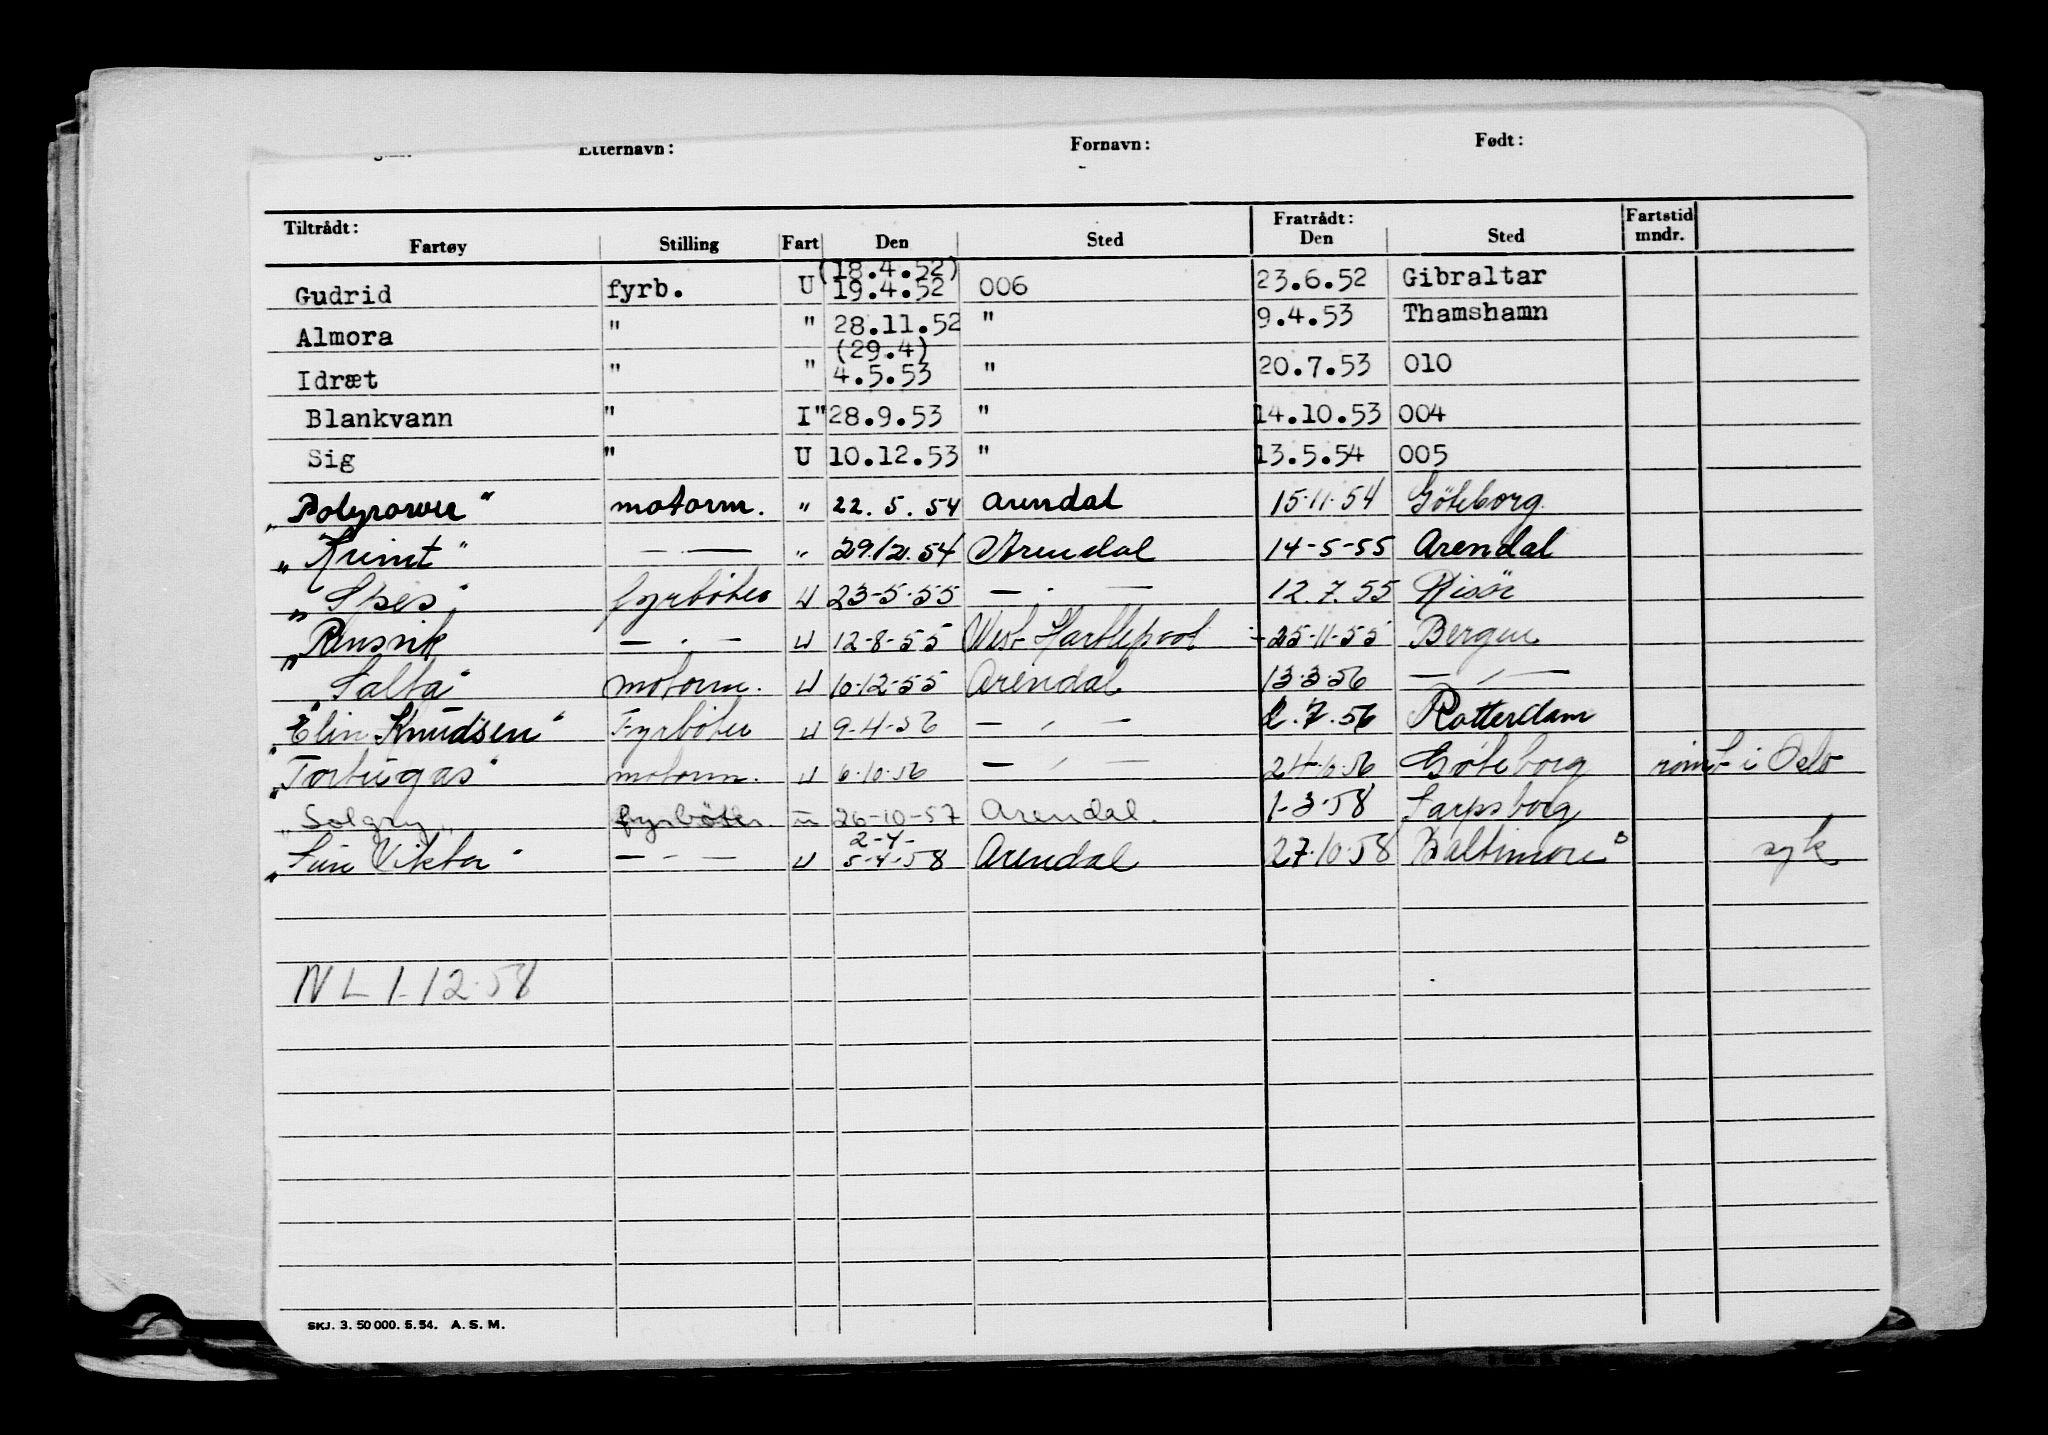 Etternavn: Fornavn: Født:
Tiltrådt: Fratrådt: Fartstid
Fartøy Stilling Fart Den Sted Den Sted mndr.
(18.4.52)
Gudrid fyrb. U 19.4.52 006 23.6.52 Gibraltar
Almora " " 28.11.52 " 9.4.53 Thamshamn
(29.4)
Idræt " " 4.5.53 " 20.7.53 010
Blankvann " I" 28.9.53 " 14.10.53 004
Sig " U 10.12.53 " 13.5.54 005
„ " motorm. " 22.5.54 Arendal 15.11.54 Göteborg
„ " — . — " 29.12.54 Arendal 14-5-55 Arendal
„Spes" fyrböter U 23-5-55 — . — 12.7.55 Risör
„ — . — U 12-8-55 West Hartlepool 25-11-55 Bergen
„Salta" motorm. U 10-12-55 Arendal 13-3-56 — , —
„Elin Knudsen" Fyrböter U 9-4-56 — , — 2.7.56 Rotterdam
„Torbugas" motorm. U 6-10-56 — , — Göteborg römt i Oslo
„Solgry" fyrböter U 26-10-57 Arendal. 1-3-58 Sarpsborg
2-4-
„ Viktor" — - — U 5-4-58 Arendal 27-10-58 Baltimore syk
NL 1-12-58
SKJ. 3. 50 000. 5.54. A. S. M.